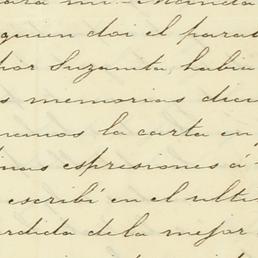 para mi.- Manda
quien doi el parab
por Suzanita, habia
s memorias deci
remos la carta en
inas espresiones á
escribí en el ulti
erdida dela mejor